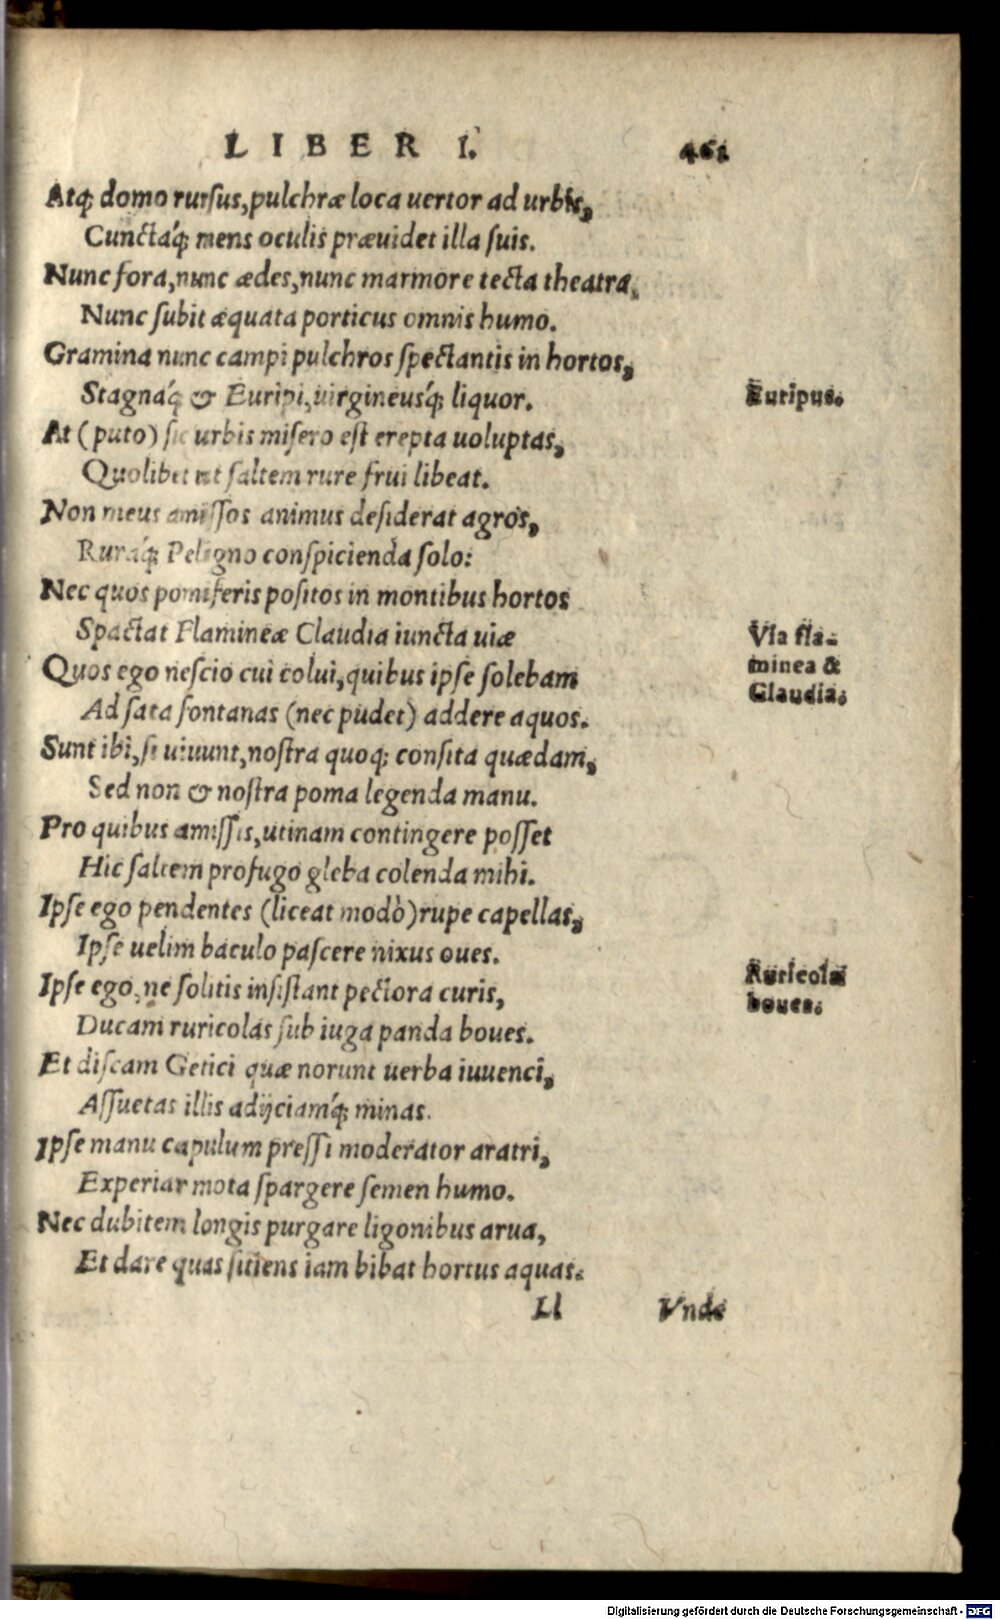 LIBER I. 461
Atq; domo rursus, pulchræ loca uertor ad urbis,
Cunctaq́; mens oculis præuidet illa suis.
Nunc fora, nunc ædes, nunc marmore tecta theatra,
Nunc subit æquata porticus omnis humo.
Gramina nunc campi pulchros spectantis in hortos,
Stagnaq́; & Euripi, uirgineusq́; liquor.
Euripus.
At (puto) sic urbis misero est erepta uoluptas,
Quolibet ut saltem rure frui libeat.
Non meus amissos animus desiderat agros,
Ruraq́; Peligno conspicienda solo:
Nec quos pomiferis positos in montibus hortos
Spactat Flamineæ Claudia iuncta uiæ
Via fla-
minea &
Claudia.
Quos ego nescio cui colui, quibus ipse solebam
Ad sata fontanas (nec pudet) addere aquos.
Sunt ibi, si uiuunt, nostra quoq; consita quædam,
Sed non & nostra poma legenda manu.
Pro quibus amissis, utinam contingere posset
Hic saltem profugo gleba colenda mihi.
Ipse ego pendentes (liceat modò) rupe capellas,
Ipse uelim baculo pascere nixus oues.
Ipse ego, ne solitis insistant pectora curis,
Ruricolæ
boues.
Ducam ruricolas sub iuga panda boues.
Et discam Getici quæ norunt uerba iuuenci,
Assuetas illis adijciamq́; minas.
Ipse manu capulum pressi moderator aratri,
Experiar mota spargere semen humo.
Nec dubitem longis purgare ligonibus arua,
Et dare quas sitiens iam bibat hortus aquas.
Ll Vnde
Digitalisierung gefördert durch die Deutsche Forschungsgemeinschaft - DFG